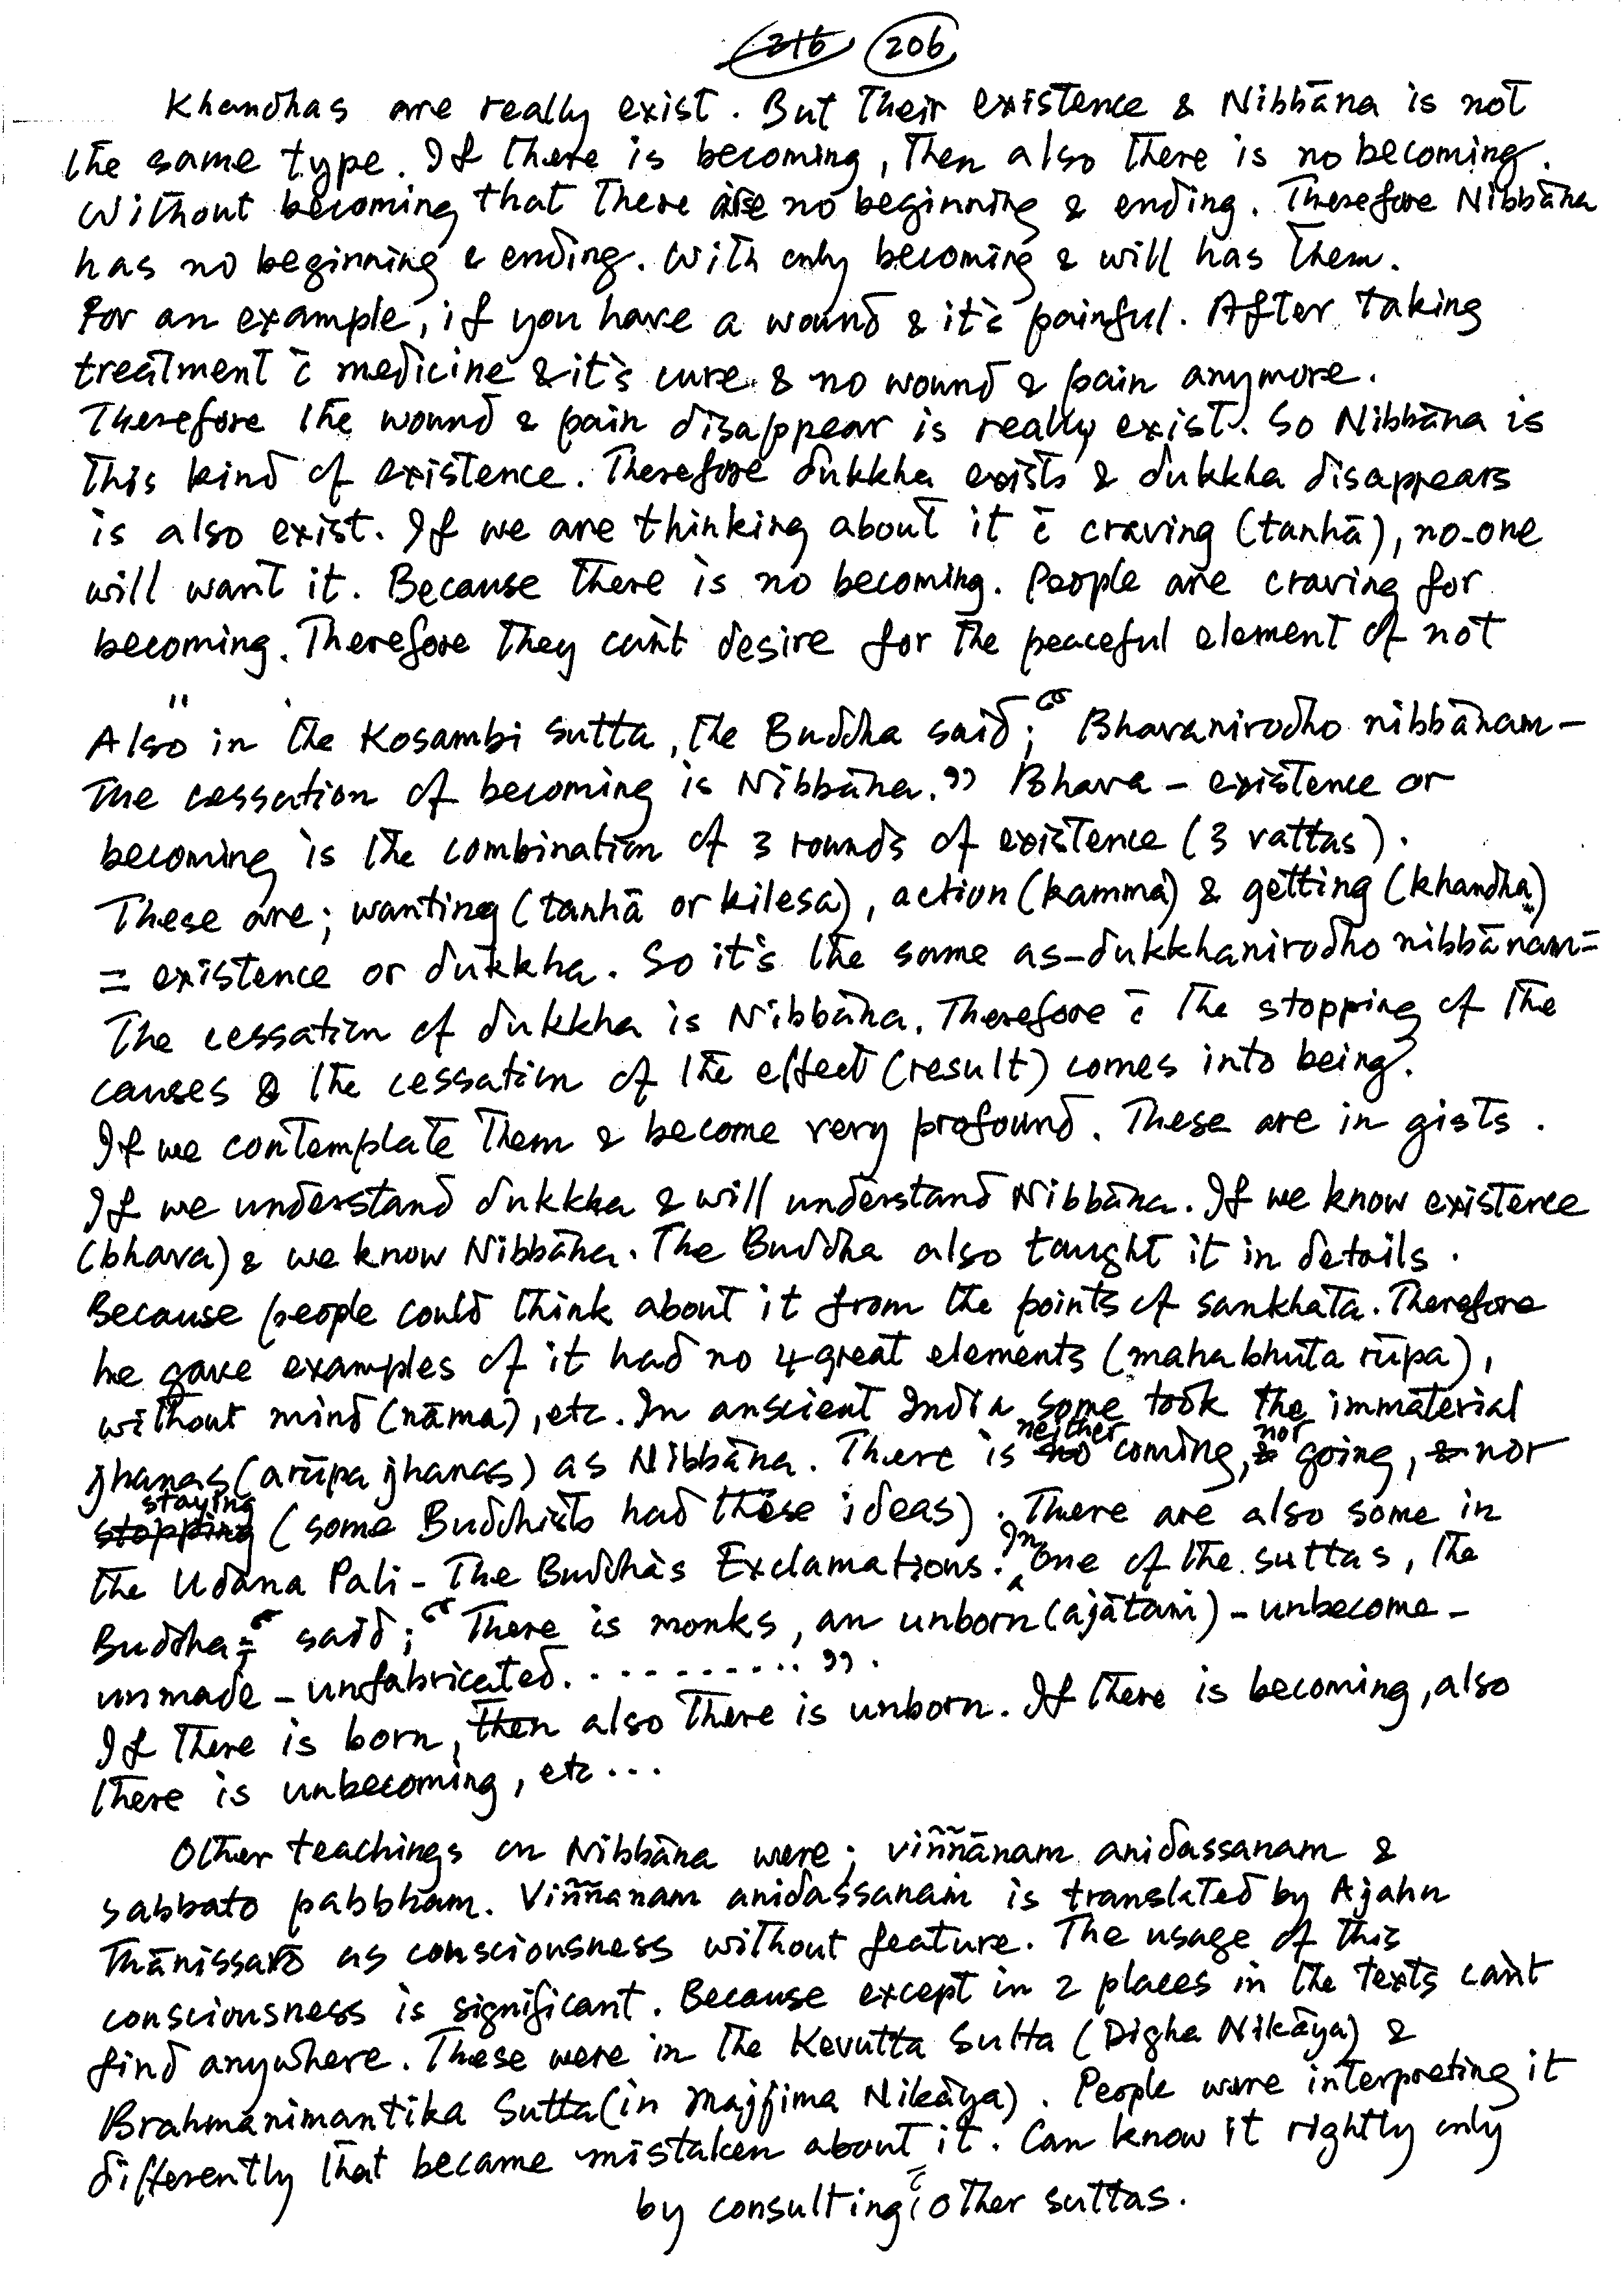 216 206
Khandhas are really exist. But Their existence & Nibbāna is not
the same type. If there is becoming, Then also there is no becoming.
Without becoming that there are no beginning & ending. Therefore Nibbāna
has no beginning & ending. With only becoming & will has them.
For an example, if you have a wound & it's painful. After taking
treatment c̄ medicine & it's cure & no wound & pain anymore.
Therefore the wound & pain disappear is really exist. So Nibbāna is
this kind of existence. Therefore dukkha exists & dukkha disappears
is also exist. If we are thinking about it c̄ craving (tanhā), no-one
will want it. Because there is no becoming. People are craving for
becoming. Therefore they can't desire for the peaceful element of not
"
Also in the Kosambi Sutta, the Buddha said; “Bhavanirodho nibbānam –
The cessation of becoming is Nibbāna.” Bhava – existence or
becoming is the combination of 3 rounds of existence (3 vattas).
These are; wanting (tanhā or kilesa), action (kamma) & getting (khandha)
= existence or dukkha. So it's the same as – dukkhanirodho nibbānam =
The cessation of dukkha is Nibbāna. Therefore c̄ the stopping of the
causes & the cessation of the effect (result) comes into being.
If we contemplate them & become very profound. These are in gists.
If we understand dukkha & will understand Nibbāna. If we know existence
(bhava) & we know Nibbāna. The Buddha also taught it in details.
Because people could think about it from the points of sankhata. Therefore
he gave examples of it had no 4 great elements (mahabhuta rūpa),
without mind (nāma), etc. In anscient India some took the immaterial
jhanas (arūpa jhanas) as Nibbāna. There is neither coming, nor going, nor
staying stopping (some Buddhists had these ideas). There are also some in
the Udāna Pali – The Buddha's Exclamations. In one of the suttas, the
Buddha said; “There is monks, an unborn (ajātam) – unbecome –
unmade – unfabricated. ..........”.
If there is born, then also there is unborn. If there is becoming, also
there is unbecoming, etc...
Other teachings on Nibbāna were; viññānam anidassanam &
sabbato pabbham. Viññanam anidassanam is translated by Ajahn
Thānissaro as consciousness without feature. The usage of this
consciousness is significant. Because except in 2 places in the texts can't
find anywhere. These were in the Kevutta Sutta (Digha Nikāya) &
Brahmanimantika Sutta (in Majjima Nikāya). People were interpreting it
differently that became mistaken about it. Can know it rightly only
by consulting c̄ other suttas.